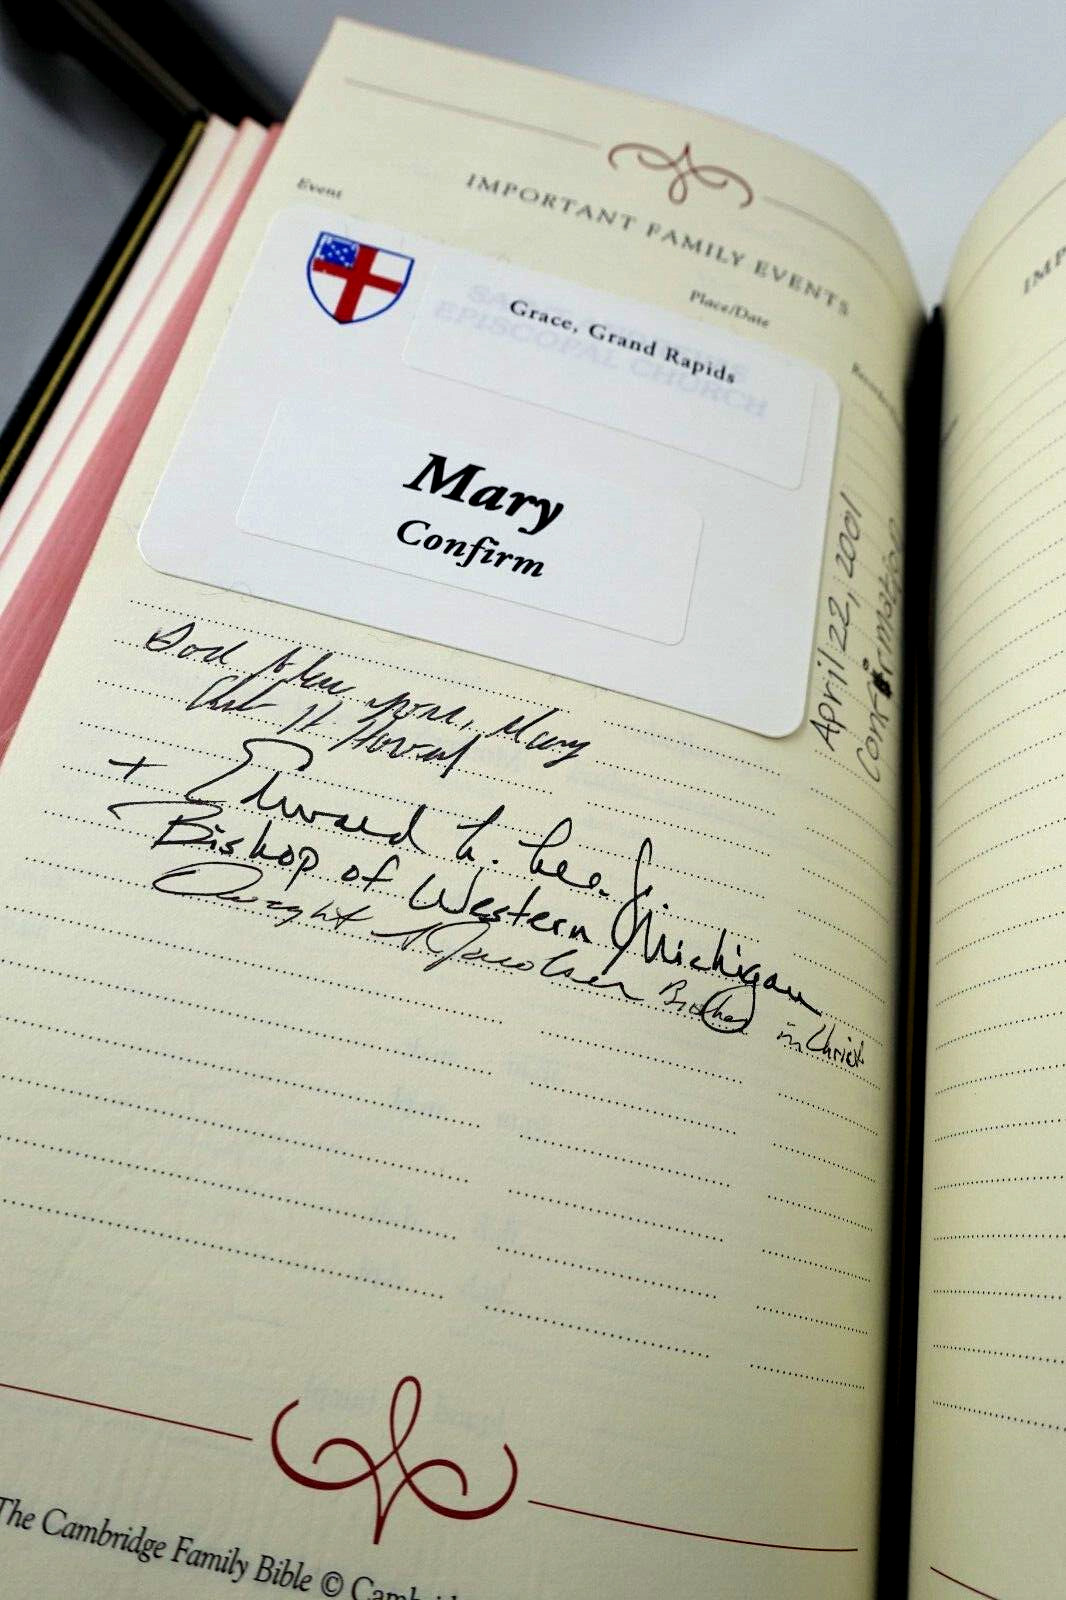 IMPORTANT FAMILY EVENTS
Event
Place/Date
EPISCOPAL CHURCH
Grace, Grand Rapids
Mary
Confirm
April 22, 2001
Confirmation
God bless you, Mary
+ Edward L. Lee. Jr.
Bishop of Western Michigan
Dwight Jacobsen Brother in Christ
The Cambridge Family Bible ©